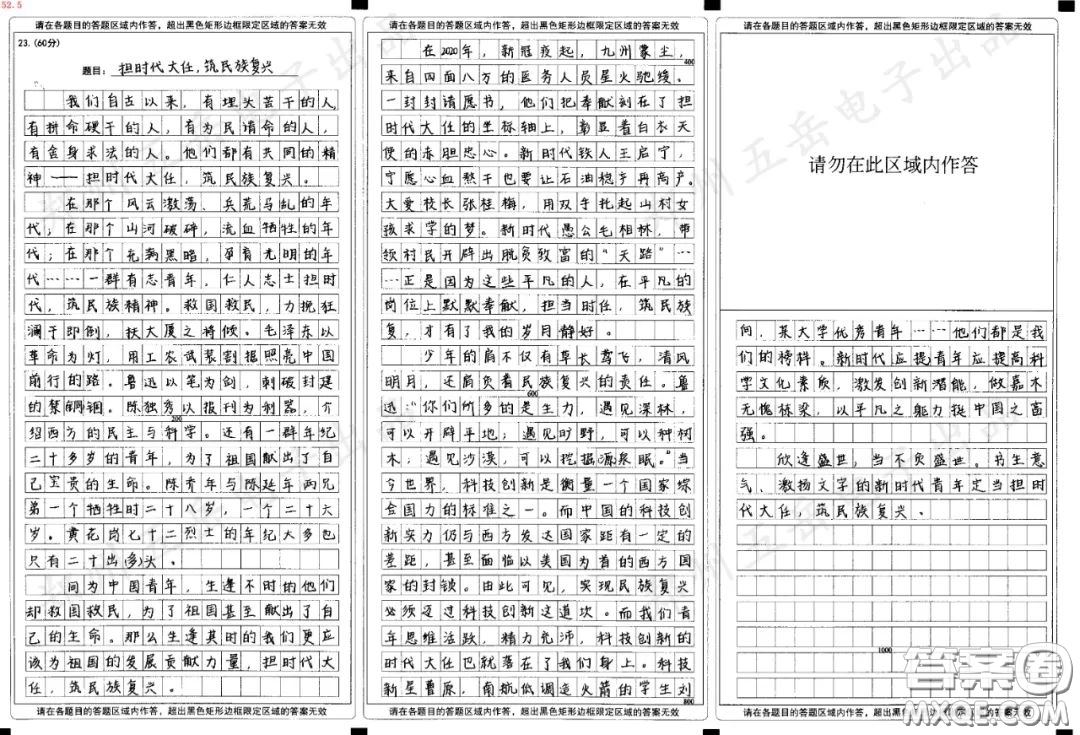 52.5
请在各题目的答题区域内作答，超出黑色矩形边框限定区域的答案无效
23. (60分)
题目：担时代大任，筑民族复兴
我们自古以来，有埋头苦干的人，
有拼命硬干的人，有为民请命的人，
有舍身求法的人。他们都有共同的精
神——担时代大任，筑民族复兴。
在那个风云激荡、兵荒马乱的年
代；在那个山河破碎，流血牺牲的年
代；在那个充满黑暗，孕育光明的年
代……一群有志青年，仁人志士担时
代，筑民族精神。救国救民，力挽狂
澜于即倒，扶大厦之将倾。毛泽东以
革命为灯，用工农武装割据照亮中国
前行的路。鲁迅以笔为剑，刺破封建
的禁锢钢。陈独秀以报刊为利器，介
200
绍西方的民主与科学。还有一群年纪
二十多岁的青年，为了祖国献出了自
己宝贵的生命。陈乔年与陈延年两兄
弟一个牺牲时二十八岁，一个二十六
岁。黄花岗七十二烈士的年纪大多也
只有二十出(多)头。
同为中国青年，生逢不时的他们
却救国救民，为了祖国甚至献出了自
己的生命。那么生逢其时的我们更应
该为祖国的发展贡献力量，担时代大
任，筑民族复兴。
请在各题目的答题区域内作答，超出黑色矩形边框限定区域的答案无效
请在各题目的答题区域内作答，超出黑色矩形边框限定区域的答案无效
在2020年，新冠疫起，九州蒙尘，
400
来自四面八方的医务人员星火驰援。
一封封请愿书，他们把奉献刻在了担
时代大任的坐标轴上，彰显着白衣天
使的赤胆忠心。新时代铁人王启宁，
宁愿心血熬干也要让石油稳产再高产。
大爱校长张桂梅，用双手托起山村女
孩求学的梦。新时代愚公毛相林，带
领村民开辟出脱贫致富的“天路”…
…正是因为这些平凡的人，在平凡的
岗位上默默奉献，担当时任，筑民族
复，才有了我的岁月静好。
少年的肩不仅有草长莺飞，清风
明月，还肩负着民族复兴的责任。鲁
600
迅：“你们所多的是生力，遇见深林，
可以开辟平地；遇见旷野，可以种树
木；遇见沙漠，可以挖掘源泉眠。”当
今世界，科技创新是衡量一个国家综
合国力的标准之一。而中国的科技创
新实力仍与西方发达国家距有一定的
差距，甚至面临以美国为首的西方国
家的封锁。由此可见，实现民族复兴
必须迈过科技创新这道坎。而我们青
年思维活跃，精力充沛，科技创新的
时代大任也就落在了我们身上。科技
新星曹原，南航低调造火箭的学生刘
800
请在各题目的答题区域内作答，超出黑色矩形边框限定区域的答案无效
请在各题目的答题区域内作答，超出黑色矩形边框限定区域的答案无效
请勿在此区域内作答
间，某大学优秀青年……他们都是我
们的榜料。新时代应提青年应提高科
学文化素质，激发创新潜能，做嘉木
无愧栋梁，以平凡之能力铤中国之富
强。
欣逢盛世，当不负盛世。书生意
气、激扬文字的新时代青年定当担时
代大任，筑民族复兴。
1000
请在各题目的答题区域内作答，超出黑色矩形边框限定区域的答案无效
答案圈
MXQE.COM
郑州五岳电子出品